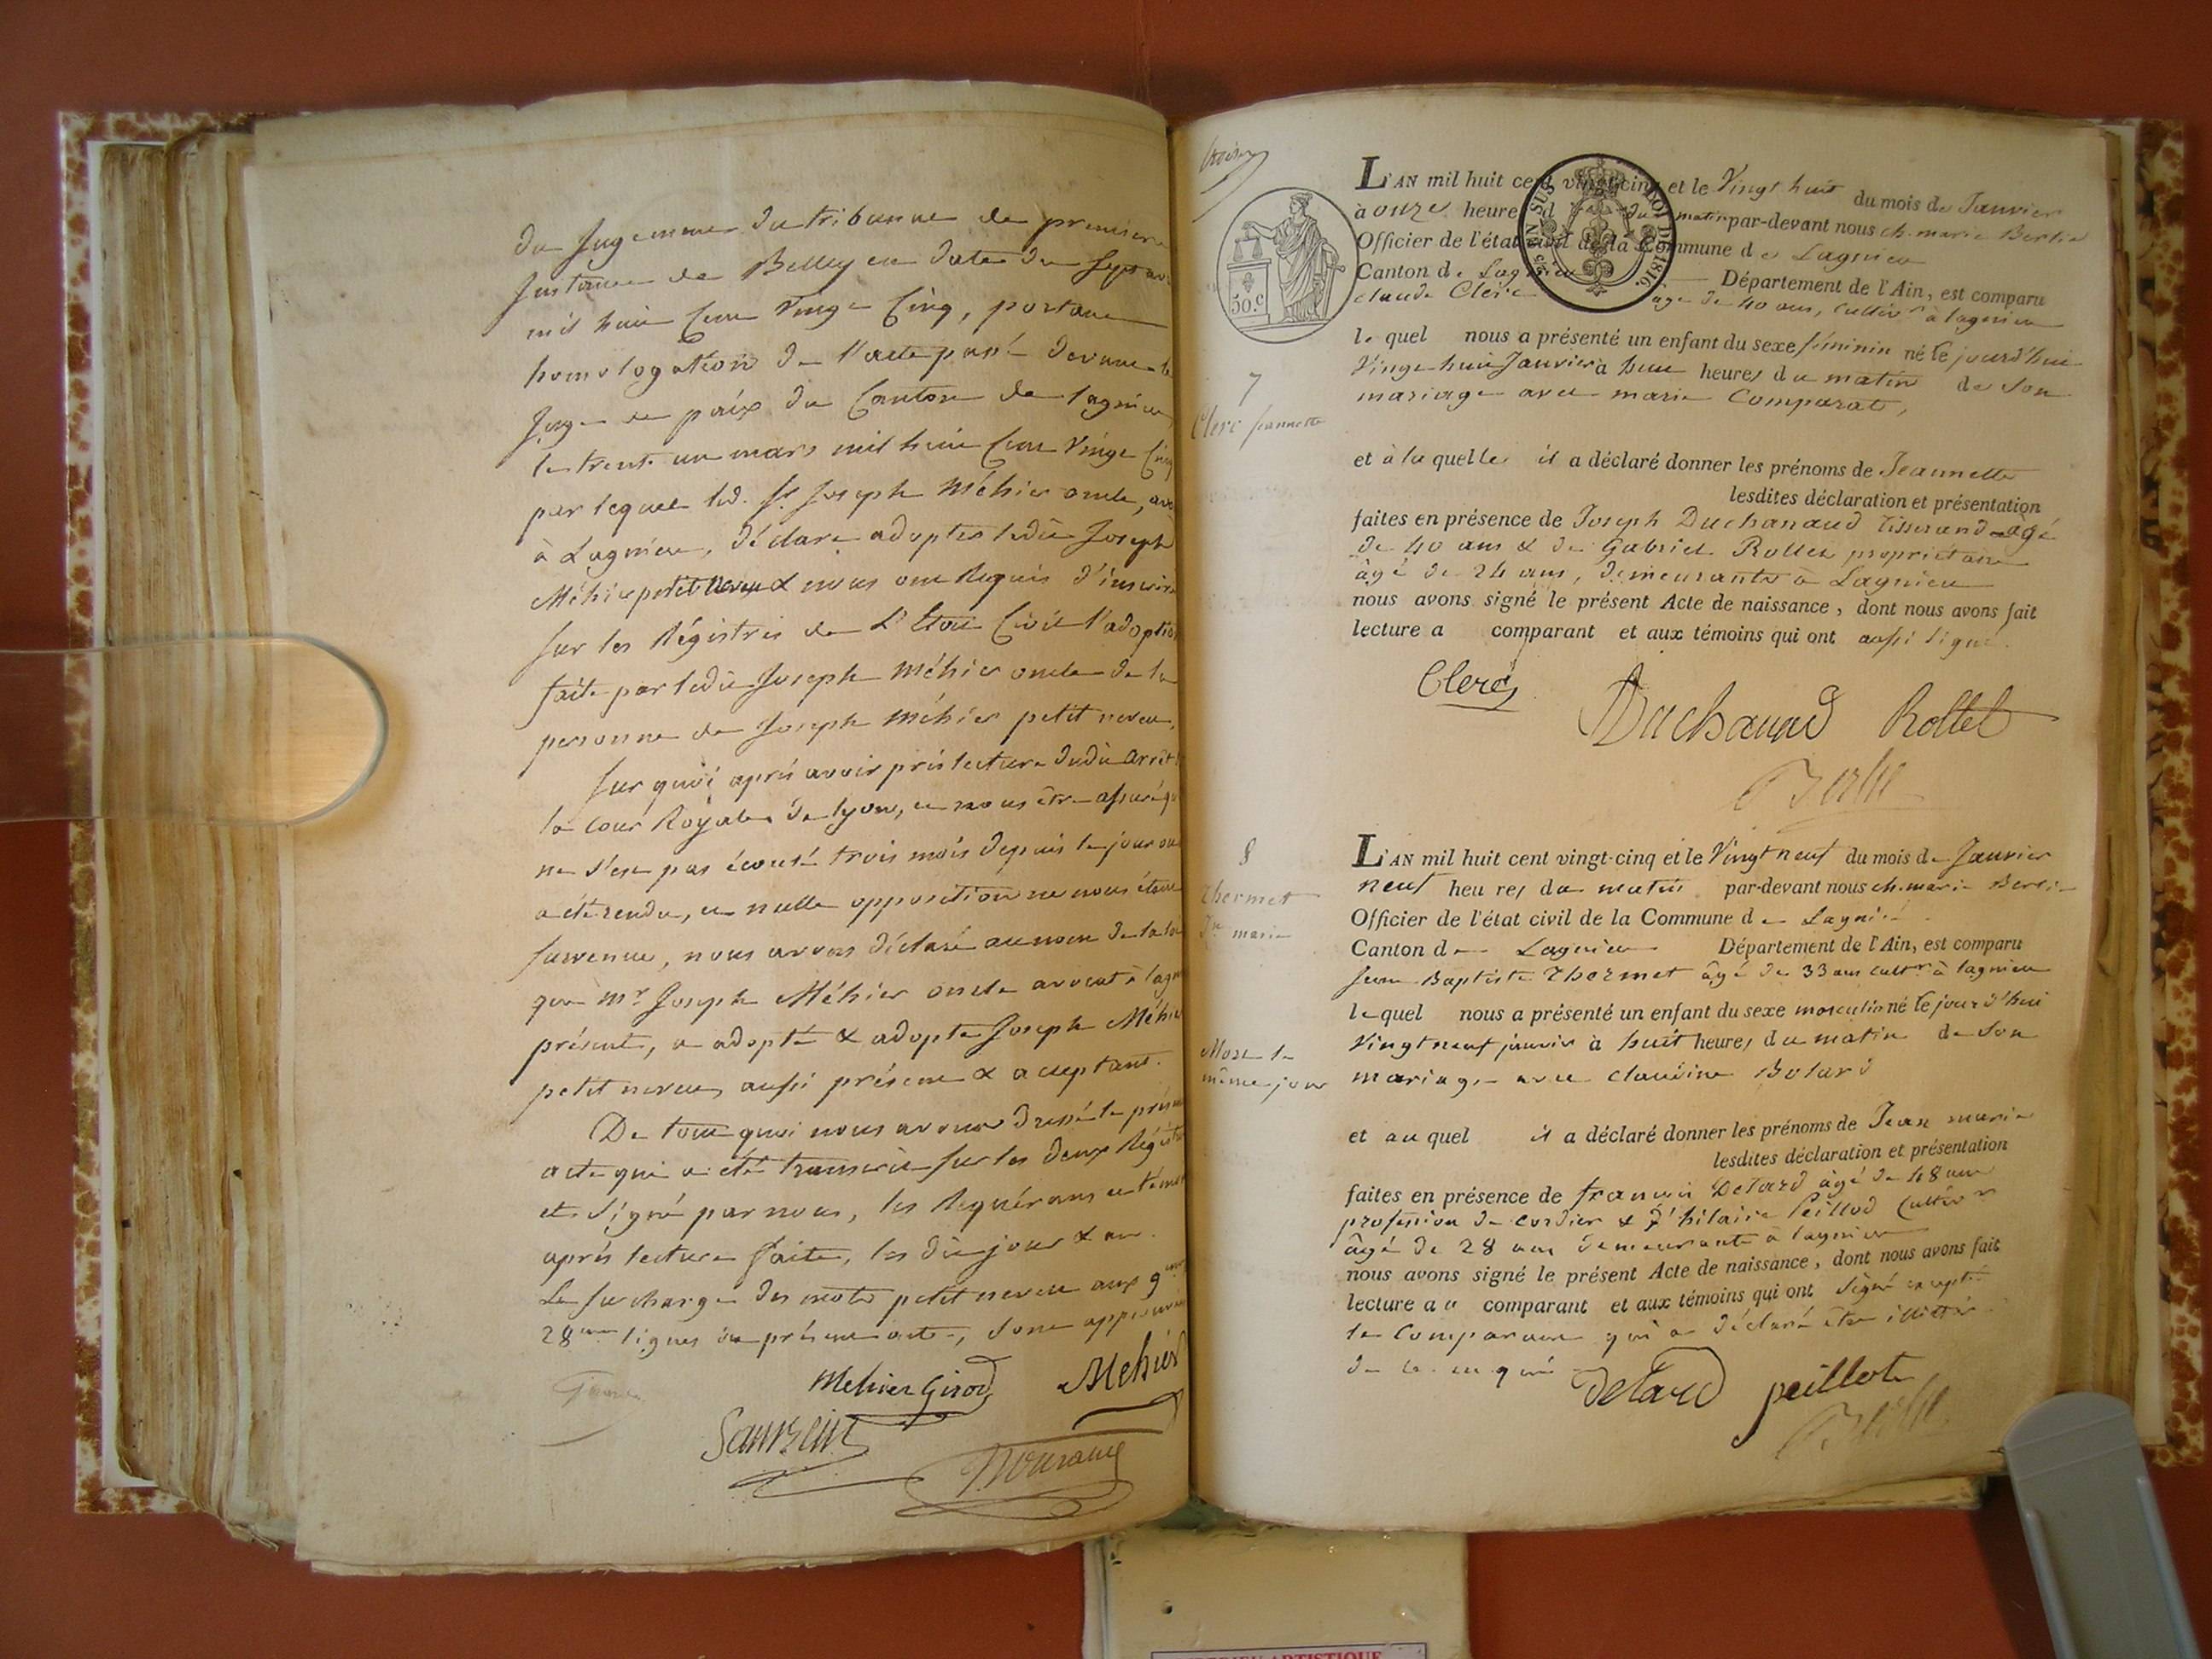 du Jugement du tribunal de premiere
Instance de Belley en date du sept avril
mil huit Cent Vingt Cinq, portant
homologation de l'acte passé devant le
Juge de paix du Canton de lagnieu
le trente un mars mil huit Cent Vingt Cinq
par lequel led. Sr. Joseph Méhier oncle,
à Lagnieu, déclare adopter ledit Joseph
Méhier petit neveu & nous ont Requis d'inscrire
sur les Régistres de L'Etat Civil l'adoption
faite par ledit Joseph Méhier oncle de la
personne de Joseph Méhier petit neveu,
sur quoi aprés avoir pris lecture dudit arrêt
la Cour Royale de lyon, et nous être assuré
ne s'est pas écoulé trois mois depuis le jour ou
a été rendu, et nulle opposition ne nous étant
survenue, nous avons déclaré au nom de la loi
que Mr Joseph Méhier oncle avocat à lagnieu
présent, a adopté & adopte Joseph Méhier
petit neveu, aussi présent & aceptant.
De tout quoi nous avons dressé le présent
acte qui a été transcrit sur les deux Régistres
et signé par nous, les Requérans et témoins
aprés lecture faite, les dit jour & an.
La surcharge des mots petit neveu aux 9eme
28eme lignes du présent acte, sont approuvés
Mehier Girod Mehier
L'AN mil huit cent vingt-cinq et le Vingt huit du mois de Janvier
à onze heures du matin par-devant nous ch. marie Berlie
Officier de l'état civil de la Commune de Lagnieu
Canton de Lagnieu Département de l'Ain, est comparu
claude Clerc âgé de 40 ans, cultivr à lagnieu
50.c
TIMBRE ROI DE 1816.
le quel nous a présenté un enfant du sexe féminin né le jourd'hui
Vingt huit Janvier à huit heures du matin de son
mariage avec marie Comparat,
7
Clerc Jeannette
et à la quelle il a déclaré donner les prénoms de Jeannette
lesdites déclaration et présentation
faites en présence de Joseph Duchanaud tisserand âgé
de 40 ans & de Gabriel Rollet propriétaire
âgé de 24 ans, demeurants à Lagnieu
nous avons signé le présent Acte de naissance, dont nous avons fait
lecture a comparant et aux témoins qui ont aussi signé.
Clerc
Duchanad Rollet
Berlie
8
L'AN mil huit cent vingt-cinq et le Vingt neuf du mois de Janvier
neuf heures du matin par-devant nous ch. marie Berlie
Thermet
Jn marie
Officier de l'état civil de la Commune de Lagnieu
Canton de Lagnieu Département de l'Ain, est comparu
Jean Baptiste Thermet âgé de 33 ans cultr à lagnieu
le quel nous a présenté un enfant du sexe masculin né le jourd'hui
Vingt neuf janvier à huit heures du matin de son
mariage avec claudine Bolard
Mort le
même jour
et au quel il a déclaré donner les prénoms de Jean marie
lesdites déclaration et présentation
faites en présence de françois Detard âgé de 48 ans
profession de cordier & d' hilaire Peillod Cultivr
âgé de 28 ans demeurants à lagnieu
nous avons signé le présent Acte de naissance, dont nous avons fait
lecture au comparant et aux témoins qui ont signé excepté
le Comparant qui a déclaré être illitéré
de ce enquis
Detard peillot
Berlie
ARTISTIQUE